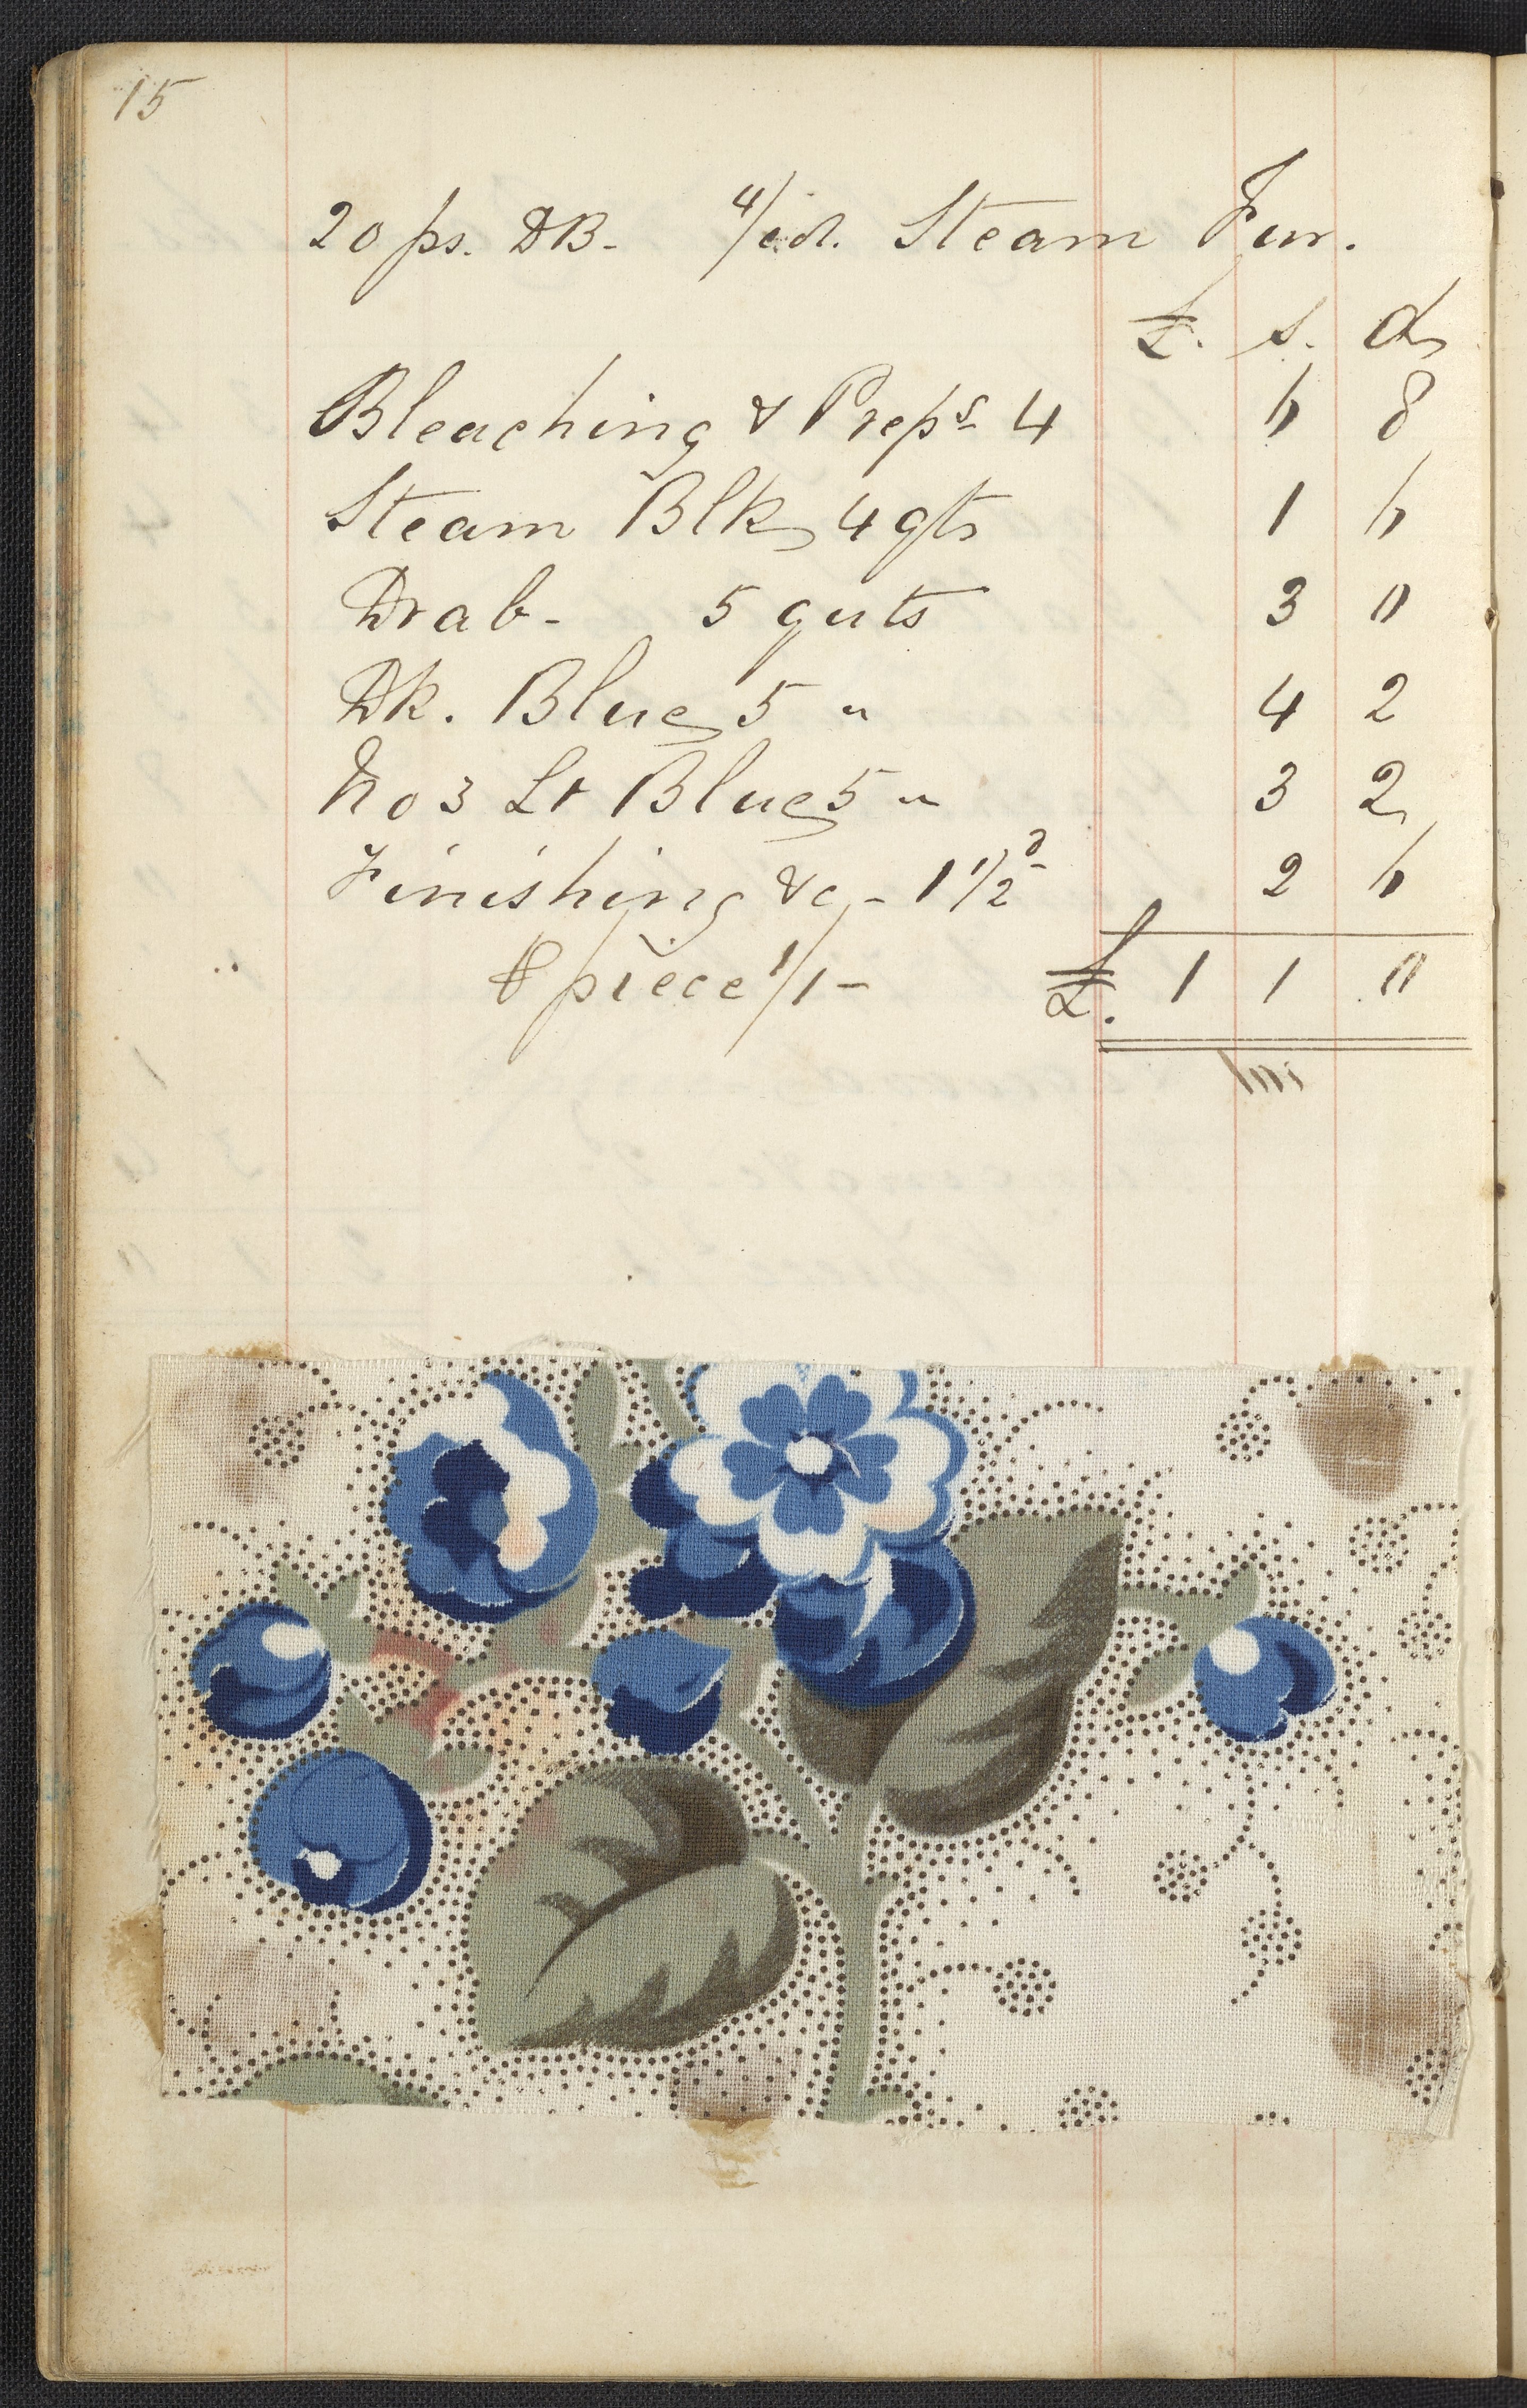 15
20 ps. DB- 4/col. Steam Fur.
£. s. d
Bleaching & Preps 4 6 8
Steam Blk 4 qts 1 6
Drab- 5 qrts 3 0
Dk. Blue 5 " 4 2
No 3 Lt Blue 5 " 3 2
Finishing &c - 1 1/2 d 2 6
℔ piece 1/1 - £. 1 1 0